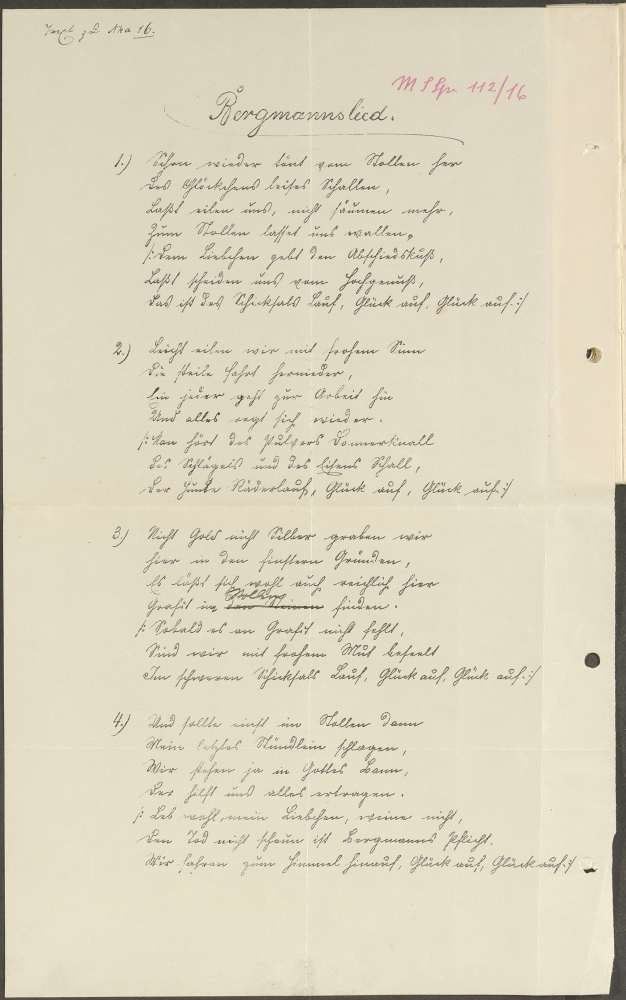 16.
M S Gr. 112/16
Bergmannslied.
1.) Schon wieder tönt vom Stollen her
Des Glöckchens leises Schallen,
Laßt eilen uns, nicht säumen mehr,
Zum Stollen lasset uns wallen.
/: Dem Liebchen gebt den Abschiedskuß,
Laßt scheiden uns vom Hochgenuß,
Das ist des Schicksals Lauf, Glück auf, Glück auf :/
2.) Leicht eilen wir mit frohem Sinn
Die steile Fahrt hernieder,
Ein jeder geht zur Arbeit hin
Und alles regt sich wieder.
/: Man hört des Pulvers Donnerknall
Des Schlägels und des Eisens Schall,
Der Hunte Räderlauf, Glück auf, Glück auf :/
3.) Nicht Gold nicht Silber graben wir
Hier in den finstern Gründen,
Es läßt sich wohl auch reichlich hier
Grafit im Stollen finden.
/: Sobald es an Grafit nicht fehlt,
Sind wir mit frohem Mut beseelt
Im schweren Schicksals Lauf, Glück auf, Glück auf :/
4.) Und sollte einst im Stollen dann
Mein letztes Stündlein schlagen,
Wir stehen ja in Gottes Bann,
Der hilft uns alles ertragen.
/: Leb wohl, mein Liebchen, weine nicht,
Den Tod nicht scheun ist Bergmanns Pflicht.
Wir fahren zum Himmel hinauf, Glück auf, Glück auf :/